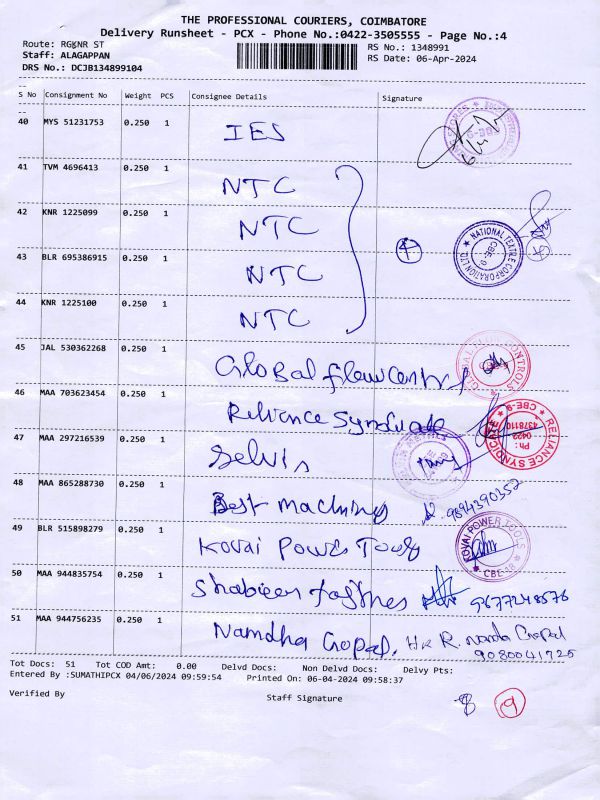 THE PROFESSIONAL COURIERS, COIMBATORE
Delivery Runsheet - PCX - Phone No.:0422-3505555 - Page No.:4
Route: RGKNR ST
RS No.: 1348991
Staff: ALAGAPPAN
RS Date: 06-Apr-2024
DRS No.: DCJB134899104
S No Consignment No Weight PCS Consignee Details Signature
40 MYS 51231753 0.250 1 IES
41 TVM 4696413 0.250 1 NTC
42 KNR 1225099 0.250 1 NTC
NATIONAL TEXTILE CORPORATION LTD CBE-9
43 BLR 695386915 0.250 1 NTC
4
44 KNR 1225100 0.250 1 NTC
45 JAL 530362268 0.250 1 Global flow control
46 MAA 703623454 0.250 1 Reliance Syndicate
RELIANCE SYNDICATE CBE-9 Ph: 0422 4378110
47 MAA 297216539 0.250 1 Selvis
48 MAA 865288730 0.250 1 Best machining 9894390352
49 BLR 515898279 0.250 1 Kovai Power Tools
KOVAI POWER TOOLS CBE-18
50 MAA 944835754 0.250 1 Shabieer 9677248576
51 MAA 944756235 0.250 1 Namdha Gopal, R. Nanda Gopal
9080041725
Tot Docs: 51 Tot COD Amt: 0.00 Delvd Docs: Non Delvd Docs: Delvy Pts:
Entered By :SUMATHIPCX 04/06/2024 09:59:54 Printed On: 06-04-2024 09:58:37
Verified By Staff Signature
8 9